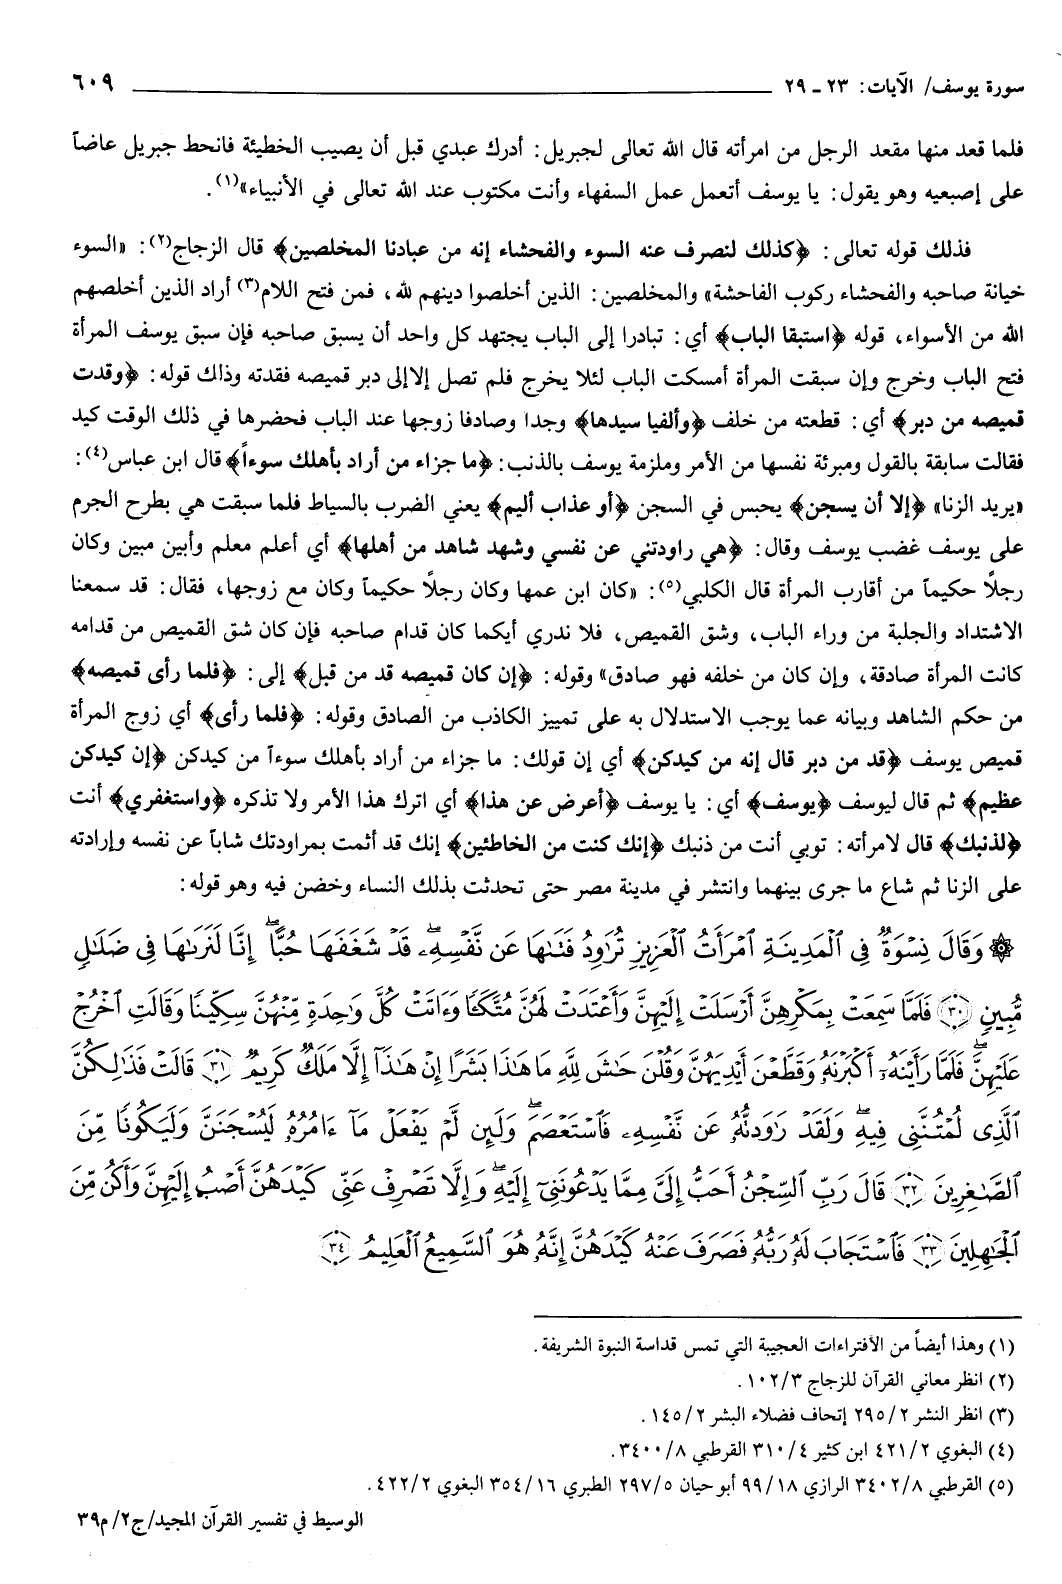 سورة يوسف/ الآيات: ٢٣ ـ ٢٩ ٦٠٩
فلما قعد منها مقعد الرجل من امرأته قال الله تعالى لجبريل: أدرك عبدي قبل أن يصيب الخطيئة فانحط جبريل عاضاً
على إصبعيه وهو يقول: يا يوسف أتعمل عمل السفهاء وأنت مكتوب عند الله تعالى في الأنبياء»(١).
فذلك قوله تعالى: ﴿كذلك لنصرف عنه السوء والفحشاء إنه من عبادنا المخلصين﴾ قال الزجاج(٢): «السوء
خيانة صاحبه والفحشاء ركوب الفاحشة» والمخلصين: الذين أخلصوا دينهم لله، فمن فتح اللام(٣) أراد الذين أخلصهم
الله من الأسواء، قوله ﴿استبقا الباب﴾ أي: تبادرا إلى الباب يجتهد كل واحد أن يسبق صاحبه فإن سبق يوسف المرأة
فتح الباب وخرج وإن سبقت المرأة أمسكت الباب لئلا يخرج فلم تصل إلاإلى دبر قميصه فقدته وذلك قوله: ﴿وقدت
قميصه من دبر﴾ أي: قطعته من خلف ﴿وألفيا سيدها﴾ وجدا وصادفا زوجها عند الباب فحضرها في ذلك الوقت كيد
فقالت سابقة بالقول ومبرئة نفسها من الأمر وملزمة يوسف بالذنب: ﴿ما جزاء من أراد بأهلك سوءاً﴾ قال ابن عباس(٤):
«يريد الزنا» ﴿إلا أن يسجن﴾ يحبس في السجن ﴿أو عذاب أليم﴾ يعني الضرب بالسياط فلما سبقت هي بطرح الجرم
على يوسف غضب يوسف وقال: ﴿هي راودتني عن نفسي وشهد شاهد من أهلها﴾ أي أعلم معلم وأبين مبين وكان
رجلاً حكيماً من أقارب المرأة قال الكلبي(٥): «كان ابن عمها وكان رجلاً حكيماً وكان مع زوجها، فقال: قد سمعنا
الاشتداد والجلبة من وراء الباب، وشق القميص، فلا ندري أيكما كان قدام صاحبه فإن كان شق القميص من قدامه
كانت المرأة صادقة، وإن كان من خلفه فهو صادق» وقوله: ﴿إن كان قميصه قد من قبل﴾ إلى: ﴿فلما رأى قميصه﴾
من حكم الشاهد وبيانه عما يوجب الاستدلال به على تمييز الكاذب من الصادق وقوله: ﴿فلما رأى﴾ أي زوج المرأة
قميص يوسف ﴿قد من دبر قال إنه من كيدكن﴾ أي إن قولك: ما جزاء من أراد بأهلك سوءآ من كيدكن ﴿إن كيدكن
عظيم﴾ ثم قال ليوسف ﴿يوسف﴾ أي: يا يوسف ﴿أعرض عن هذا﴾ أي اترك هذا الأمر ولا تذكره ﴿واستغفري﴾ أنت
﴿لذنبك﴾ قال لامرأته: توبي أنت من ذنبك ﴿إنك كنت من الخاطئين﴾ إنك قد أثمت بمراودتك شاباً عن نفسه وإرادته
على الزنا ثم شاع ما جرى بينهما وانتشر في مدينة مصر حتى تحدثت بذلك النساء وخضن فيه وهو قوله:
۞ وَقَالَ نِسْوَةٌ فِي الْمَدِينَةِ امْرَأَتُ الْعَزِيزِ تُرَاوِدُ فَتَاهَا عَن نَّفْسِهِ ۖ قَدْ شَغَفَهَا حُبًّا ۖ إِنَّا لَنَرَاهَا فِي ضَلَالٍ
مُّبِينٍ (٣٠) فَلَمَّا سَمِعَتْ بِمَكْرِهِنَّ أَرْسَلَتْ إِلَيْهِنَّ وَأَعْتَدَتْ لَهُنَّ مُتَّكَأً وَءَاتَتْ كُلَّ وَاحِدَةٍ مِّنْهُنَّ سِكِّينًا وَقَالَتِ اخْرُجْ
عَلَيْهِنَّ ۖ فَلَمَّا رَأَيْنَهُ أَكْبَرْنَهُ وَقَطَّعْنَ أَيْدِيَهُنَّ وَقُلْنَ حَاشَ لِلَّهِ مَا هَٰذَا بَشَرًا إِنْ هَٰذَا إِلَّا مَلَكٌ كَرِيمٌ (٣١) قَالَتْ فَذَٰلِكُنَّ
الَّذِي لُمْتُنَّنِي فِيهِ ۖ وَلَقَدْ رَاوَدتُّهُ عَن نَّفْسِهِ فَاسْتَعْصَمَ ۖ وَلَئِن لَّمْ يَفْعَلْ مَا ءَامُرُهُ لَيُسْجَنَنَّ وَلَيَكُونًا مِّنَ
الصَّاغِرِينَ (٣٢) قَالَ رَبِّ السِّجْنُ أَحَبُّ إِلَيَّ مِمَّا يَدْعُونَنِي إِلَيْهِ ۖ وَإِلَّا تَصْرِفْ عَنِّي كَيْدَهُنَّ أَصْبُ إِلَيْهِنَّ وَأَكُن مِّنَ
الْجَاهِلِينَ (٣٣) فَاسْتَجَابَ لَهُ رَبُّهُ فَصَرَفَ عَنْهُ كَيْدَهُنَّ إِنَّهُ هُوَ السَّمِيعُ الْعَلِيمُ (٣٤)
(١) وهذا أيضاً من الافتراءات العجيبة التي تمس قداسة النبوة الشريفة.
(٢) انظر معاني القرآن للزجاج ١٠٢/٣.
(٣) انظر النشر ٢٩٥/٢ إتحاف فضلاء البشر ١٤٥/٢.
(٤) البغوي ٤٢١/٢ ابن كثير ٣١٠/٤ القرطبي ٣٤٠٠/٨.
(٥) القرطبي ٣٤٠٢/٨ الرازي ٩٩/١٨ أبو حيان ٢٩٧/٥ الطبري ٣٥٤/١٦ البغوي ٤٢٢/٢.
الوسيط في تفسير القرآن المجيد/ج٢/م٣٩